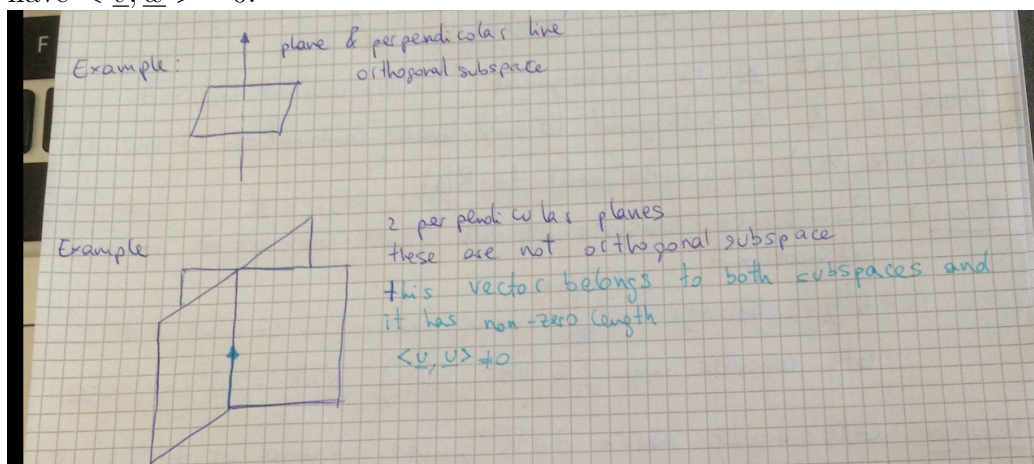 have < v, w > = 0.
F
plane & perpendicolar line
Example:
orthogonal subspace
2 perpendicular planes
Example
these are not orthogonal subspace
this vector belongs to both subspaces and
it has non-zero length
<v, v> ≠0